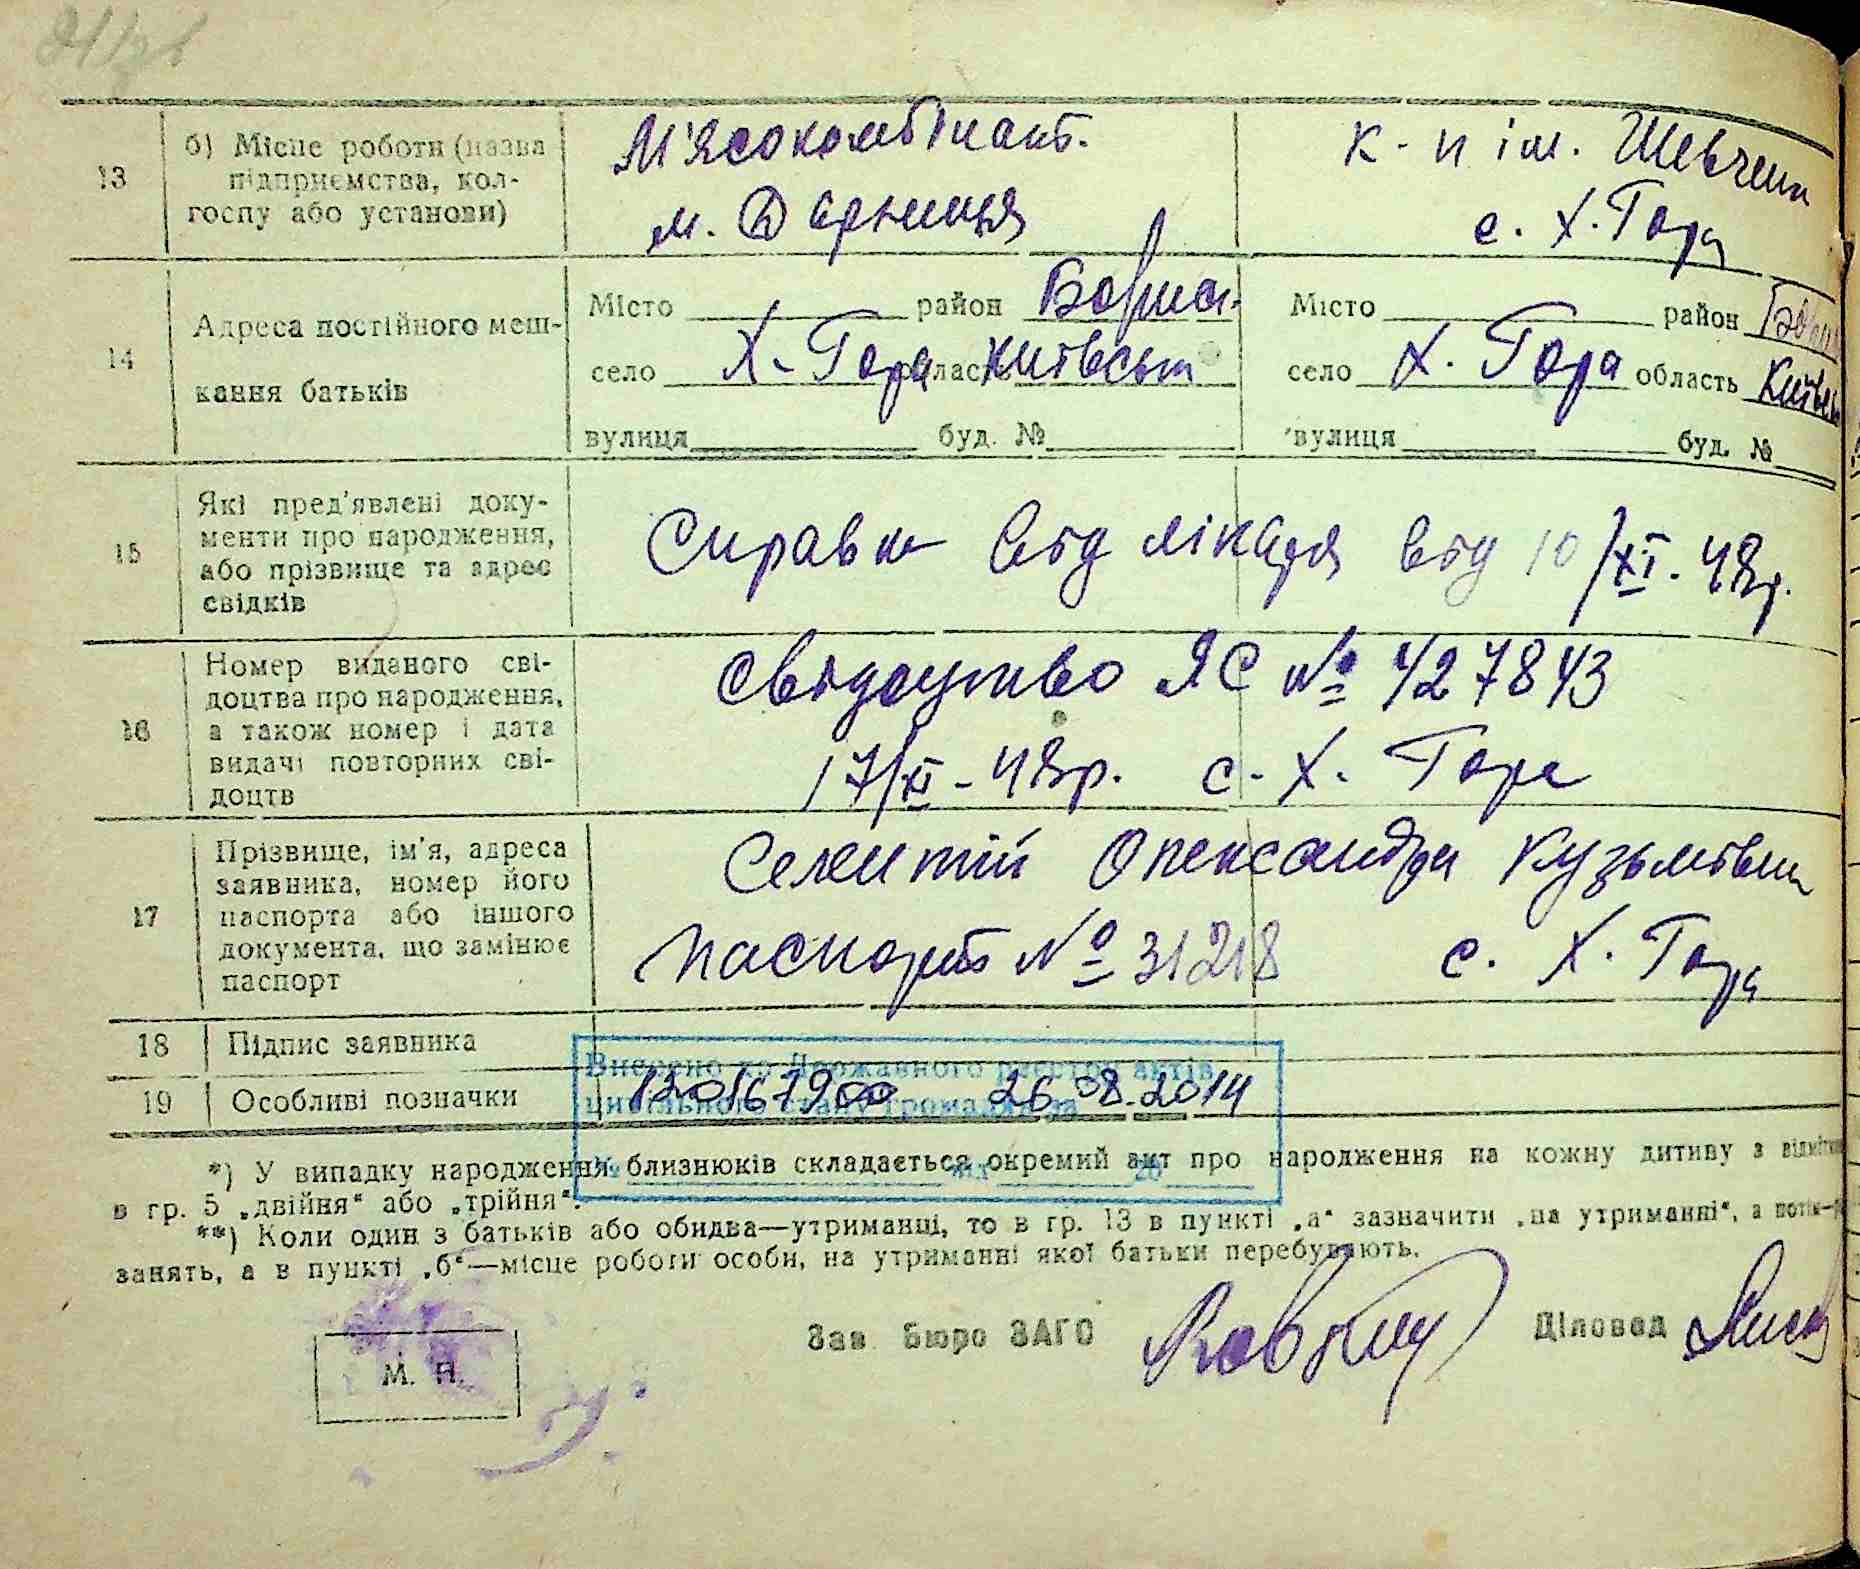 13
б) Місце роботи (назва
підприємства, кол-
госпу або установи)
М'ясокомбінат.
м. Дарниця
к-п ім. Шевченк
с. Х. Гора
14
Адреса постійного меш-
кання батьків
Місто район Борисп.
село Х. Гора область Київськ
вулиця буд. №
Місто район
село Х. Гора область Київськ
вулиця буд. №
15
Які пред'явлені доку-
менти про народження,
або прізвище та адрес
свідків
Справка від лікаря від 10/XI-48р.
16
Номер виданого сві-
доцтва про народження,
а також номер і дата
видачі повторних сві-
доцтв
Свідоцтво ЯС № 427843
17/XI-48р. с. Х. Гора
17
Прізвище, ім'я, адреса
заявника, номер його
паспорта або іншого
документа, що замінює
паспорт
Олександра Кузьмівна
паспорт № 31218 с. Х. Гора
18 Підпис заявника
Внесено до Державного реєстру актів
19 Особливі позначки
120167900 26.08.2014
цивільного стану громадян за
№ від 20
*) У випадку народження близнюків складається окремий акт про народження на кожну дитину з відмітк
в гр. 5 „двійня“ або „трійня“.
**) Коли один з батьків або обидва—утриманці, то в гр. 13 в пункті „а“ зазначити „на утриманні“, а потім—р
занять, а в пункті „б“—місце роботи особи, на утриманні якої батьки перебувають.
Зав Бюро ЗАГС
Діловод
М. П.